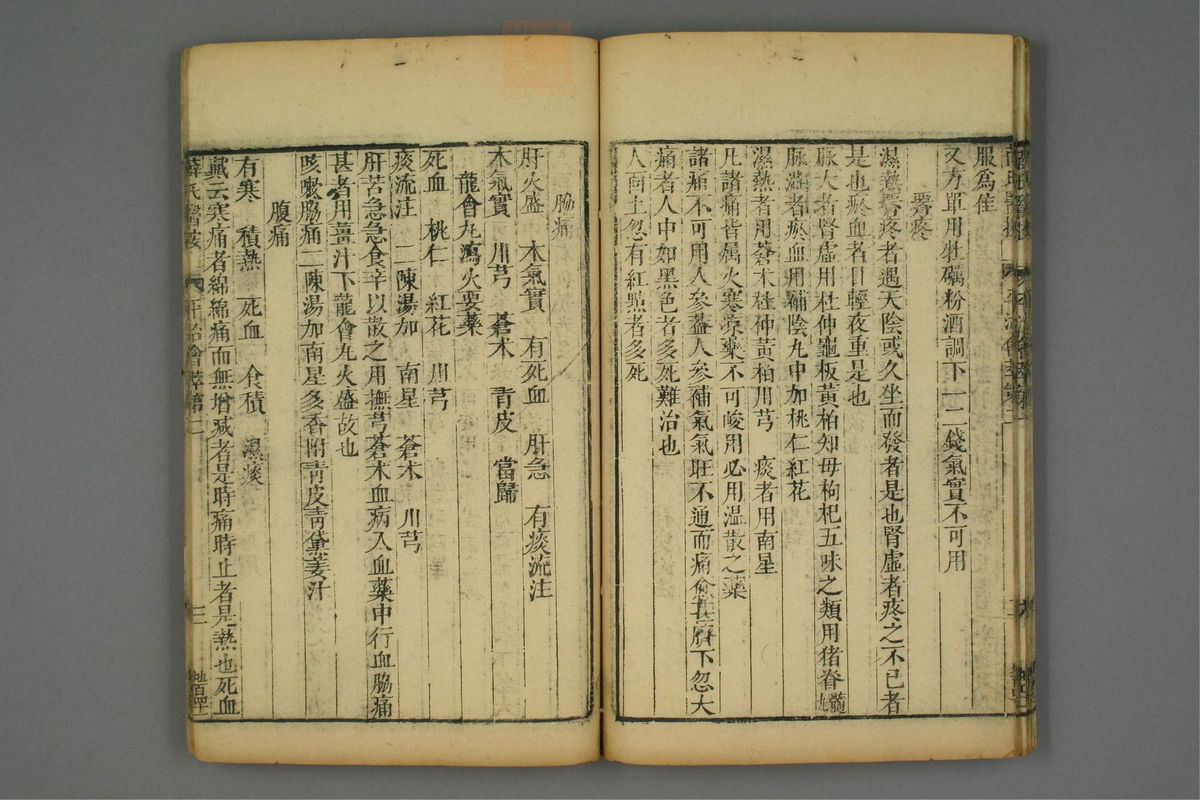 服爲佳
又方單用牡礪粉酒調下一二錢氣實不可用
腎疼
濕熱腎疼者遇天陰或久坐而發者是也腎虛者疼之不已者
是也瘀血者日輕夜重是也
脉大者腎虛用杜仲龜板黃柏知母枸杞五味之類用猪脊髓丸
脉濇者瘀血用補陰丸中加桃仁紅花
濕熱者用蒼木杜仲黃柏川芎 痰者用南星
凡諸痛皆属火寒凉藥不可峻用必用温散之藥
諸痛不可用人參蓋人參補氣氣旺不通而痛愈甚臍下忽大
痛者人中如黑色者多死難治也
人面上忽有紅㸃者多死
脇痛
肝火盛 木氣實 有死血 肝急 有痰流注
木氣實 川芎 蒼术 青皮 當歸
龍會丸瀉火要藥
死血 桃仁 紅花 川芎
痰流注 二陳湯加 南星 蒼木 川芎
肝苦急急食辛以散之用撫芎蒼木血病入血藥中行血脇痛
甚者用薑汁下龍會丸火盛故也
咳嗽脇痛二陳湯加南星多香附青皮青黛姜汁
腹痛
有寒 積熱 死血 食積 濕痰
戴云寒痛者綿綿痛而無增減者是時痛時止者是熱也死血
薛氏醫按 平治會萃第二 三